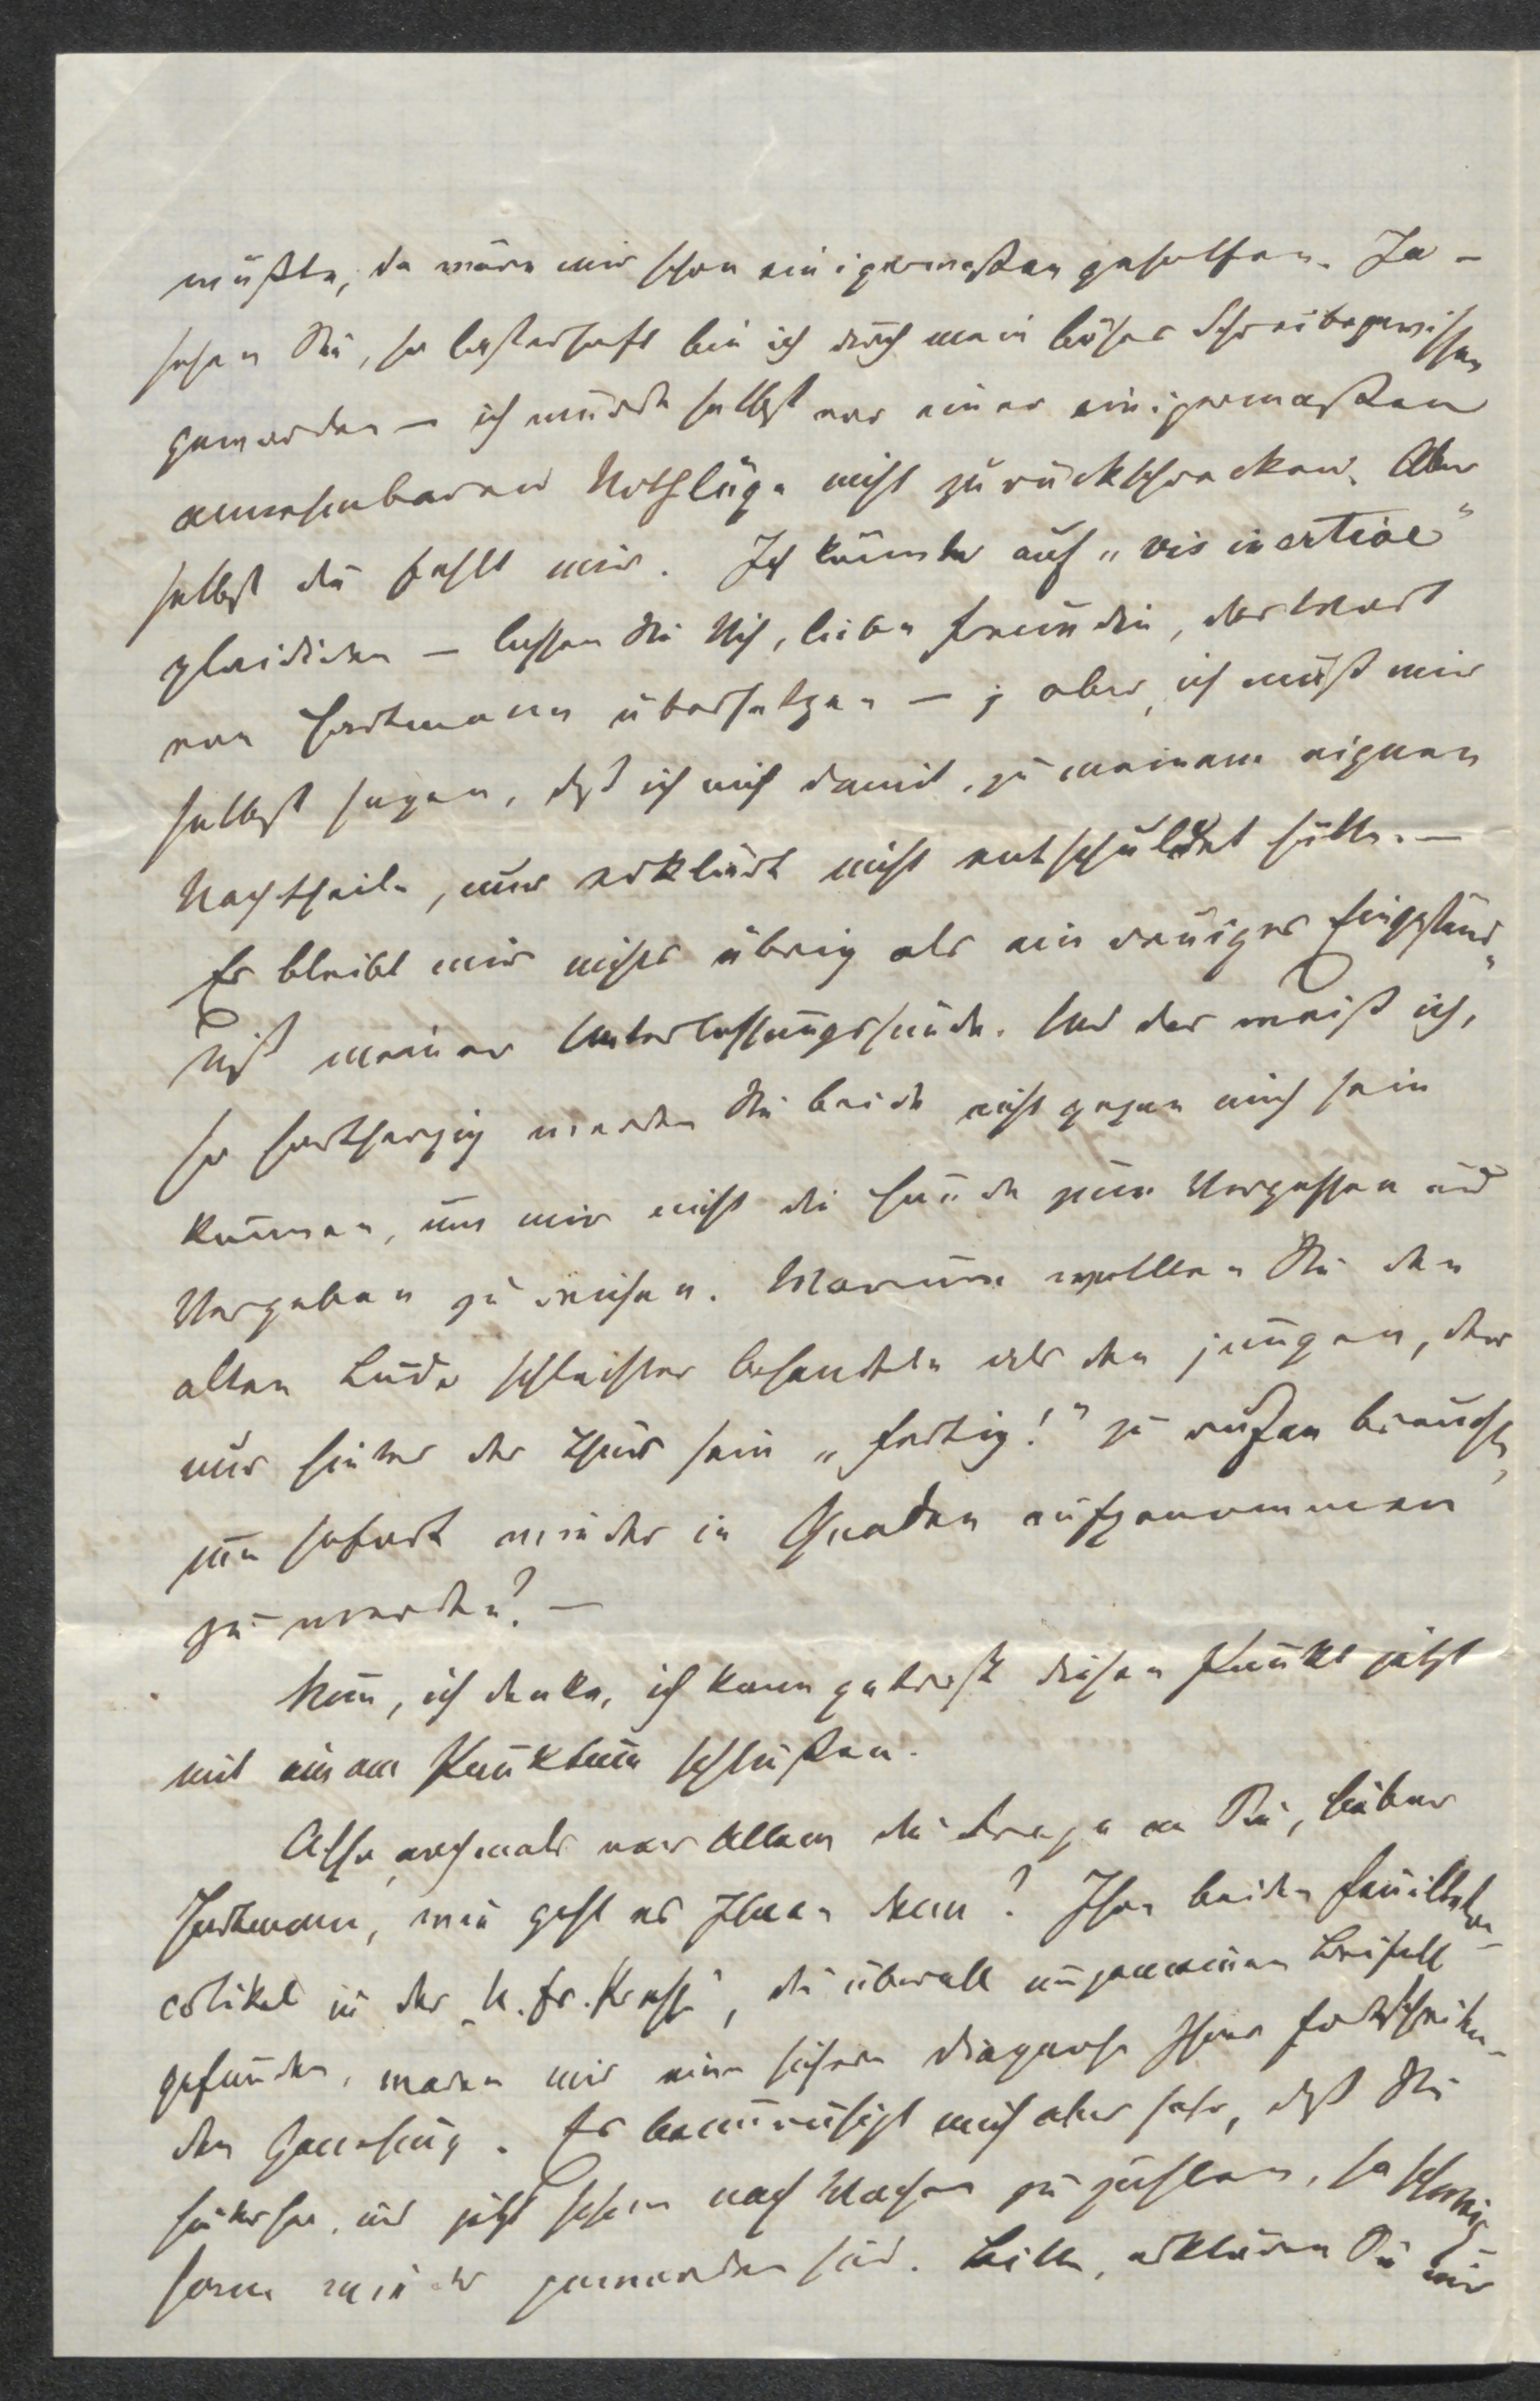 müßte, da wäre mir schon einigermaßen geholfen. Ja –
sehen Sie, so lasterhaft bin ich durch mein böses Schreibegewissen
geworden – ich würde selbst vor einer einigermaßen
annehmbaren Nothlüge nicht zurückschrecken. Aber
selbst die fehlt mir. Ich könnte auf „vis inertiae"
plaidiren – lassen Sie Sich, liebe Freundin, das Wort
von Hartmann übersetzen –; aber, ich muß mir
selbst sagen, daß ich mich damit, zu meinem eignen
Nachtheile, nur erklärt nicht entschuldet hätte. –
Es bleibt mir nichts übrig als ein reuiges Eingeständ-
niß meiner Unterlassungssünde. Und das weiß ich,
so hartherzig werden Sie beide nicht gegen mich sein
können, um mir nicht die Hände zum Vergessen und
Vergeben zu reichen. Warum wollen Sie den
alten Lude schlechter behandeln als den jungen, der
nur hinter der Thür sein „fertig!" zu rufen braucht,
um sofort wieder in Gnaden aufgenommen
zu werden? –
Nun, ich denke, ich kann getrost diesen Punkt jetzt
mit einem Punktum schließen.
Also nochmals vor Allem die Frage an Sie, lieber
Hartmann, wie geht es Ihnen denn? Ihre beiden Feuilleton-
artikel in der „N. fr. Presse", die überall ungemeinen Beifall
gefunden, waren mir eine sichere Diagnose Ihrer fortschreiten-
den Genesung. Es beunruhigt mich aber sehr, daß Sie
seither, und jetzt schon nach Wochen zu zählen, so schweig-
sam wieder geworden sind. Bitte, erklären Sie mir